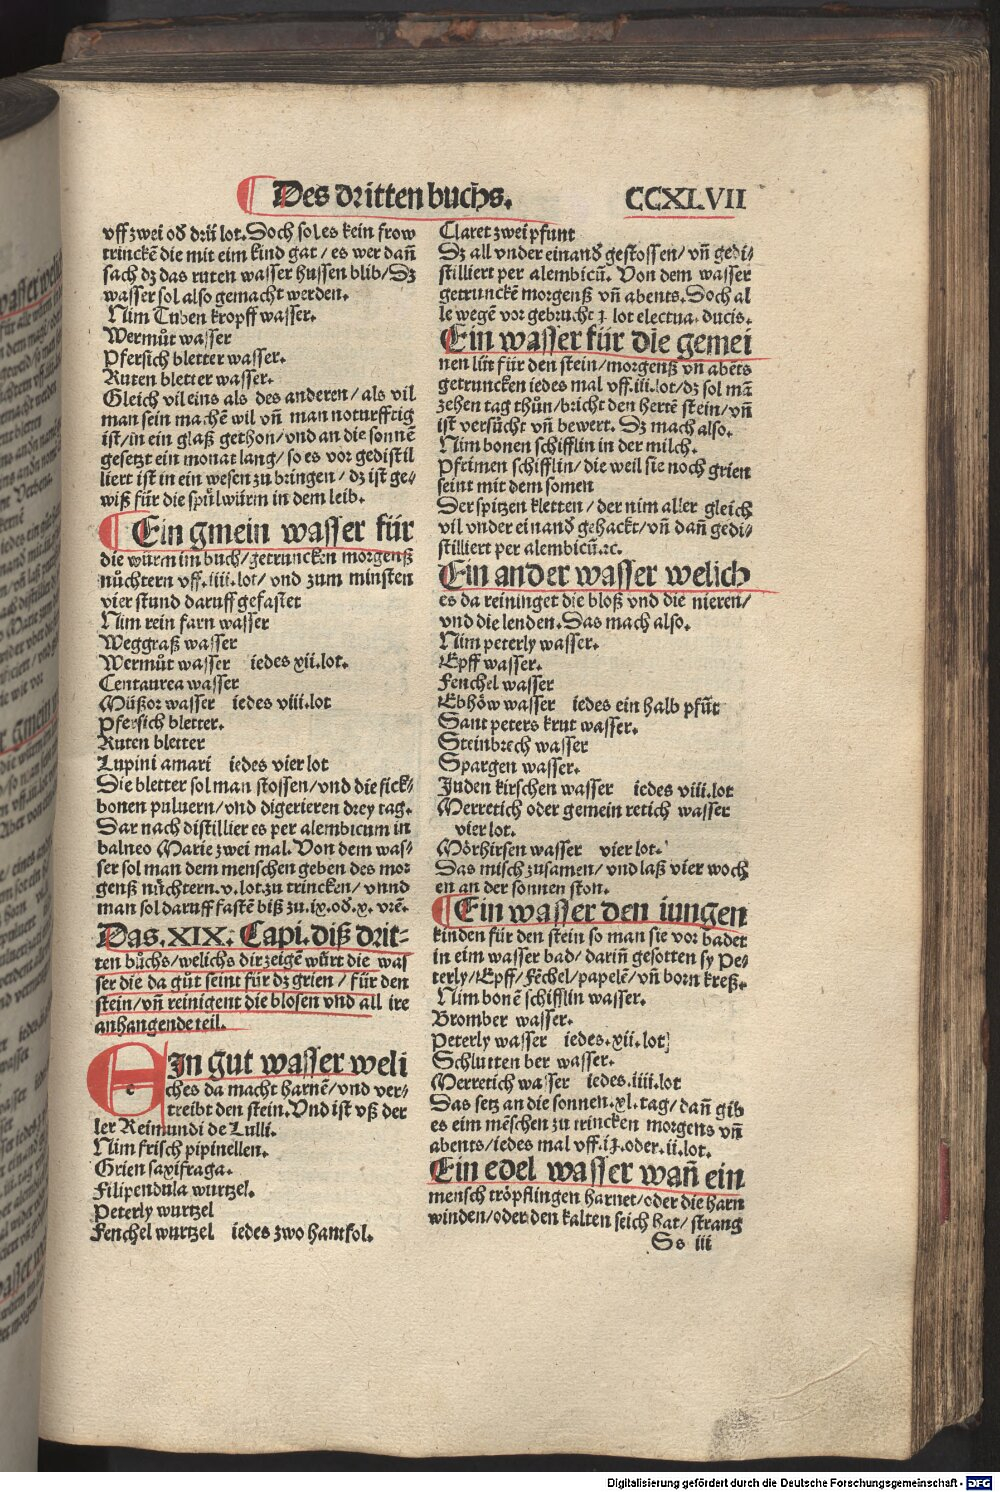 Des dritten buchs.
CCXLVII
vff zwei od̄ drü lot. Doch sol es kein frow
trinckē die mit eim kind gat / es wer dañ
sach dz das ruten wasser hussen blib / Dz
wasser sol also gemacht werden.
Nim Tuben kropff wasser.
Wermůt wasser
Pfersich bletter wasser.
Ruten bletter wasser.
Gleich vil eins als des anderen / als vil
man sein machē wil vñ man noturfftig
ist / in ein glaß gethon / vnd an die sonnē
gesetzt ein monat lang / so es vor gedistil
liert ist in ein wesen zu bringen / dz ist ge⸗
wiß für die spülwürm in dem leib.
Ein gmein wasser für
die würm im buch / getruncken morgenß
nůchtern vff. iiii. lot / vnd zum minsten
vier stund daruff gefastet
Nim rein farn wasser
Weggraß wasser
Wermůt wasser iedes xii. lot.
Centaurea wasser
Müßor wasser iedes viii. lot
Pfersich bletter.
Ruten bletter
Lupini amari iedes vier lot
Die bletter sol man stossen / vnd die fick⸗
bonen puluern / vnd digerieren drey tag.
Dar nach distillier es per alembicum in
balneo Marie zwei mal. Von dem was⸗
ser sol man dem menschen geben des mor
genß nůchtern. v. lot zu trincken / vnnd
man sol daruff fastē biß zu. ix. od̄. x. vrē.
Das. XIX. Capi. diß drit⸗
ten bůchs / welichs dir zeigē würt die was
ser die da gůt seint für dz grien / für den
stein / vñ reinigent die blosen vnd all ire
anhangende teil.
EIn gut wasser weli
ches da macht harnē / vnd ver⸗
treibt den stein. Vnd ist vß der
ler Reimundi de Lulli.
Nim frisch pipinellen.
Grien saxifraga.
Filipendula wurtzel.
Peterly wurtzel
Fenchel wurtzel iedes zwo hantfol.
Claret zwei pfunt
Dz all vnder einand̄ gestossen / vñ gedi⸗
stilliert per alembicū. Von dem wasser
getrunckē morgenß vñ abents. Doch al
le wegē vor gebrucht j lot electua. ducis.
Ein wasser für die gemei
nen lüt für den stein / morgenß vñ abēts
getruncken iedes mal vff. iii. lot / dz sol mā
zehen tag thůn / bricht den hertē stein / vñ
ist versůcht vñ bewert. Dz mach also.
Nim bonen schifflin in der milch.
Pfrimen schifflin / die weil sie noch grien
seint mit dem somen
Der spitzen kletten / der nim aller gleich
vil vnder einand̄ gehackt / vñ dañ gedi⸗
stilliert per alembicū. ꝛc.
Ein ander wasser welich
es da reininget die bloß vnd die nieren /
vnd die lenden. Das mach also.
Nim peterly wasser.
Epff wasser.
Fenchel wasser
Ebhöw wasser iedes ein halb pfūt
Sant peters krut wasser.
Steinbrech wasser
Spargen wasser.
Juden kirschen wasser iedes viii. lot
Merretich oder gemein retich wasser
vier lot.
Mörhirsen wasser vier lot.
Das misch zusamen / vnd laß vier woch
en an der sonnen ston.
Ein wasser den iungen
kinden für den stein so man sie vor badet
in eim wasser bad / dariñ gesotten sy Pe⸗
terly / Epff / Fēchel / papelē / vñ born kreß.
Nim bonē schifflin wasser.
Bromber wasser.
Peterly wasser iedes. xii. lot
Schlutten ber wasser.
Merretich wasser iedes. iiii. lot
Das setz an die sonnen. xl. tag / dañ gib
es eim mēschen zu trincken morgens vñ
abents / iedes mal vff. ij. oder. ii. lot.
Ein edel wasser wañ ein
mensch tröpflingen harnet / oder die harn
winden / oder den kalten seich hat / strang
Ss iii
Digitalisierung gefördert durch die Deutsche Forschungsgemeinschaft - DFG